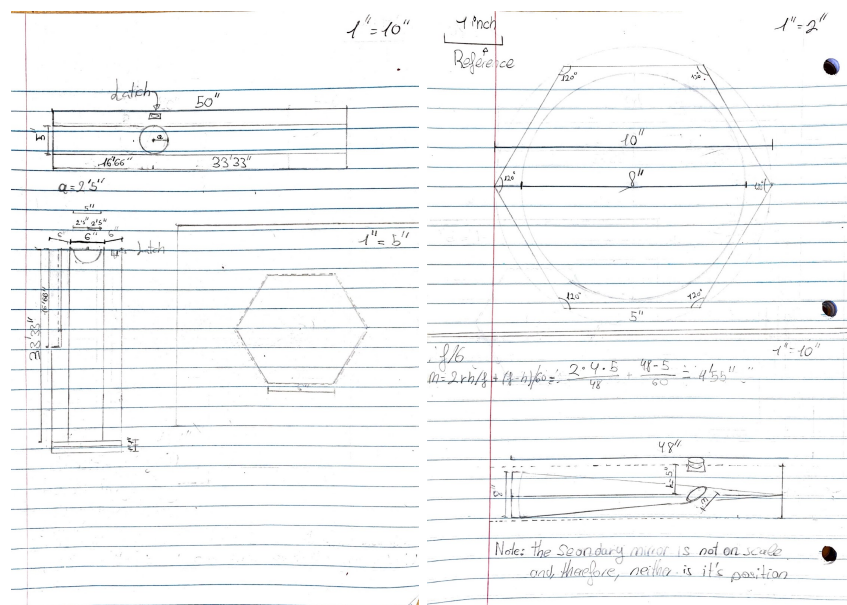 1"=10"
Latich
50"
5"
a
16'66"
33'33"
a=2'5"
5"
2'5" 2'5"
6" 6" 6"
Latch
16'66"
33'33"
1"=5"
1 inch
Reference
1"=2"
120° 120°
10"
120° 8" 120°
120° 120°
5"
f/6
1"=10"
m=2rh/f + (f-h)/60 = 2·4·5/48 + 48-5/60 = 1'55"
48"
8"
h=5"
m
Note: the Seondary mirror is not on scale
and, therefore, neither is it's position